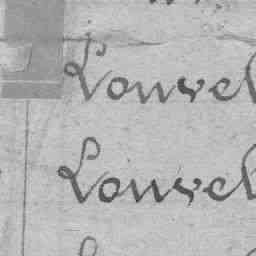 Louvel
Louvel